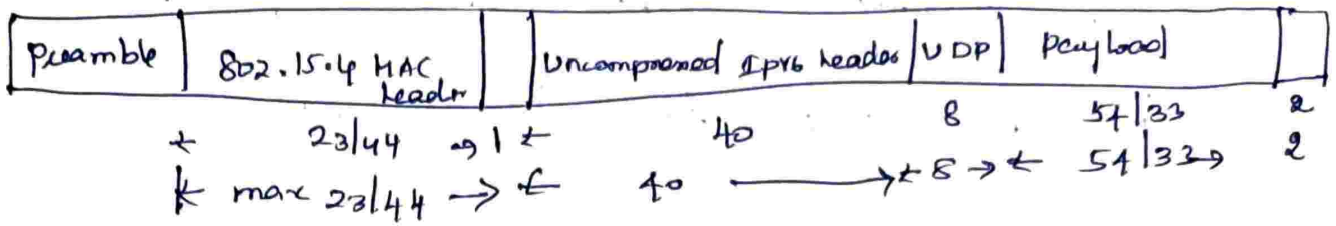 Preamble 802.15.4 MAC header Uncompressed Ipv6 header UDP Payload
← 23/44 → 1 ← 40 8 54/33 2
← max 23/44 → ← 40 → ← 8 → ← 54/33 → 2